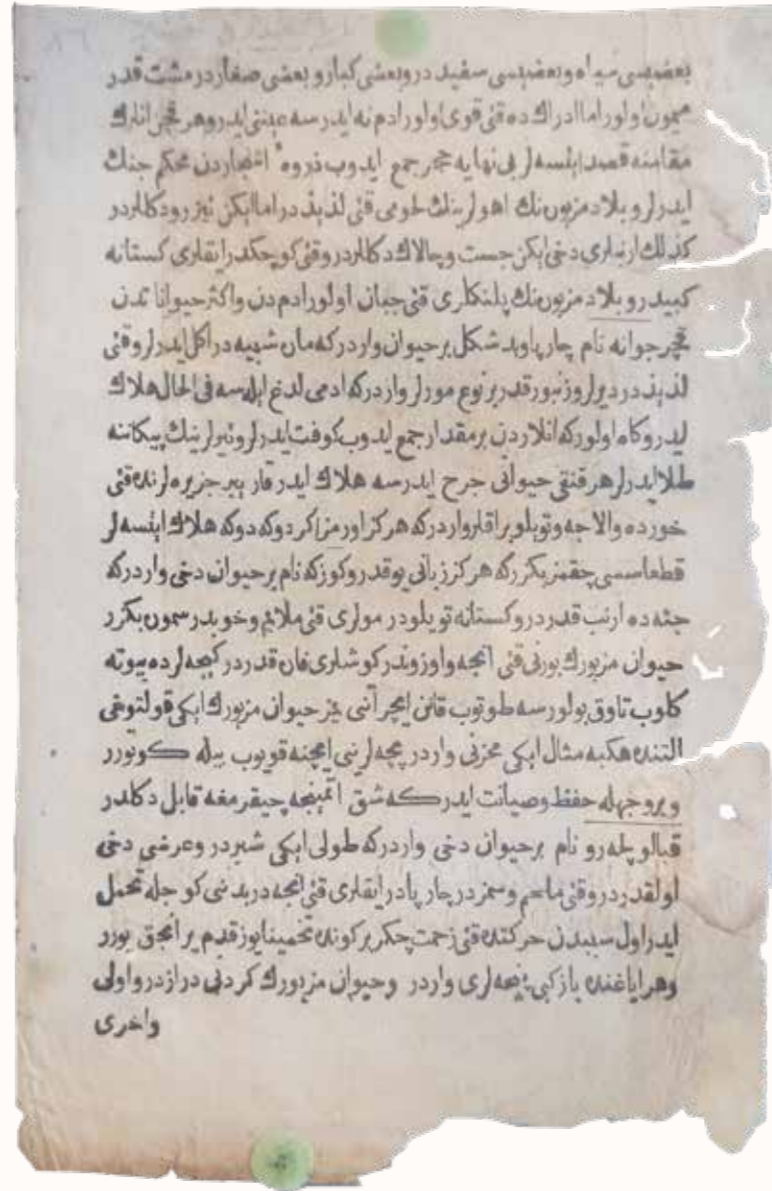 بعضیسی سیاه و بعضیسی سفید در و بعضی کبار و بعضی صغار در مشت قدر
میمون اولور اما ادراك ده قتی قوی اولور ادم نه ایدرسه عینی ایدر و هر قچن انلرك
مقامنه قصد ایتسه لر بی نهایه حجر جمع ایدوب ذروهٔ اشجاردن محکم جنك
ایدرلر و بلاد مزبوره نك اهولرینك لحومی قتی لذیذ در اما ایکن تیزرو دکللردر
کذلك ارنبلری دخی ایکن جست و چالاك دکللردر و قتی کوچکدر ایقلری کستانه
کبیدر و بلاد مزبوره نك پلنکلری قتی جبان اولور ادم دن و اکثر حیواناتدن
قچر جوانه نام چارپا و بد شکل بر حیوان واردر که مان شبیه در اکل ایدرلر و قتی
لذیذ در دیرلر و زنبور قدر بر نوع مورلر واردر که ادمی لدغ ایلسه فی الحال هلاك
ایدر و کاه اولور که انلاردن بر مقدار جمع ایدوب کوفت ایدرلر و تیرلرینك پیکاننه
طلا ایدرلر هر قنقی حیوانی جرح ایدرسه هلاك ایدر قاریبر جزیره لرنده قتی
خورده و الاجه و تویلو براقلر واردر که هرکز اورمز اکر دوکه دوکه هلاك ایتسه لر
قطعا سسی چقمز بکزر که هرکز زبانی یوقدر و کوزکه نام بر حیوان دخی واردر که
جثه ده ارنب قدر در و کستانه تویلودر مولری قتی ملایم و خوبدر سموره بکزر
حیوان مزبورك بورنی قتی انجه و اوزوندر کوشلری فان قدر در کیجه لرده بیوته
کلوب تاوق بولورسه طوتوب قانن ایچر آتنی یمز حیوان مزبورك ایکی قولتوغی
التنده هکبه مثال ایکی مخزنی واردر بچه لرینی ایچنه قویوب بیله کوتورر
و بر وجهله حفظ و صیانت ایدر که شق اتمینجه چیقرمغه قابل دکلدر
قبالو پله رو نام بر حیوان دخی واردر که طولی ایکی شبردر و عرضی دخی
اولقدردر و قتی ملحم و سمزدر چارپادر ایقلری قتی انجه در بدنی کوجله تحمل
ایدر اول سببدن حرکتده قتی زحمت چکر بر کونده تخمینا یوز قدم یر انجق یورر
و هر ایاغنده باز کبی پنچه لری واردر و حیوان مزبورك کردنی درازدر و اولی
واخری